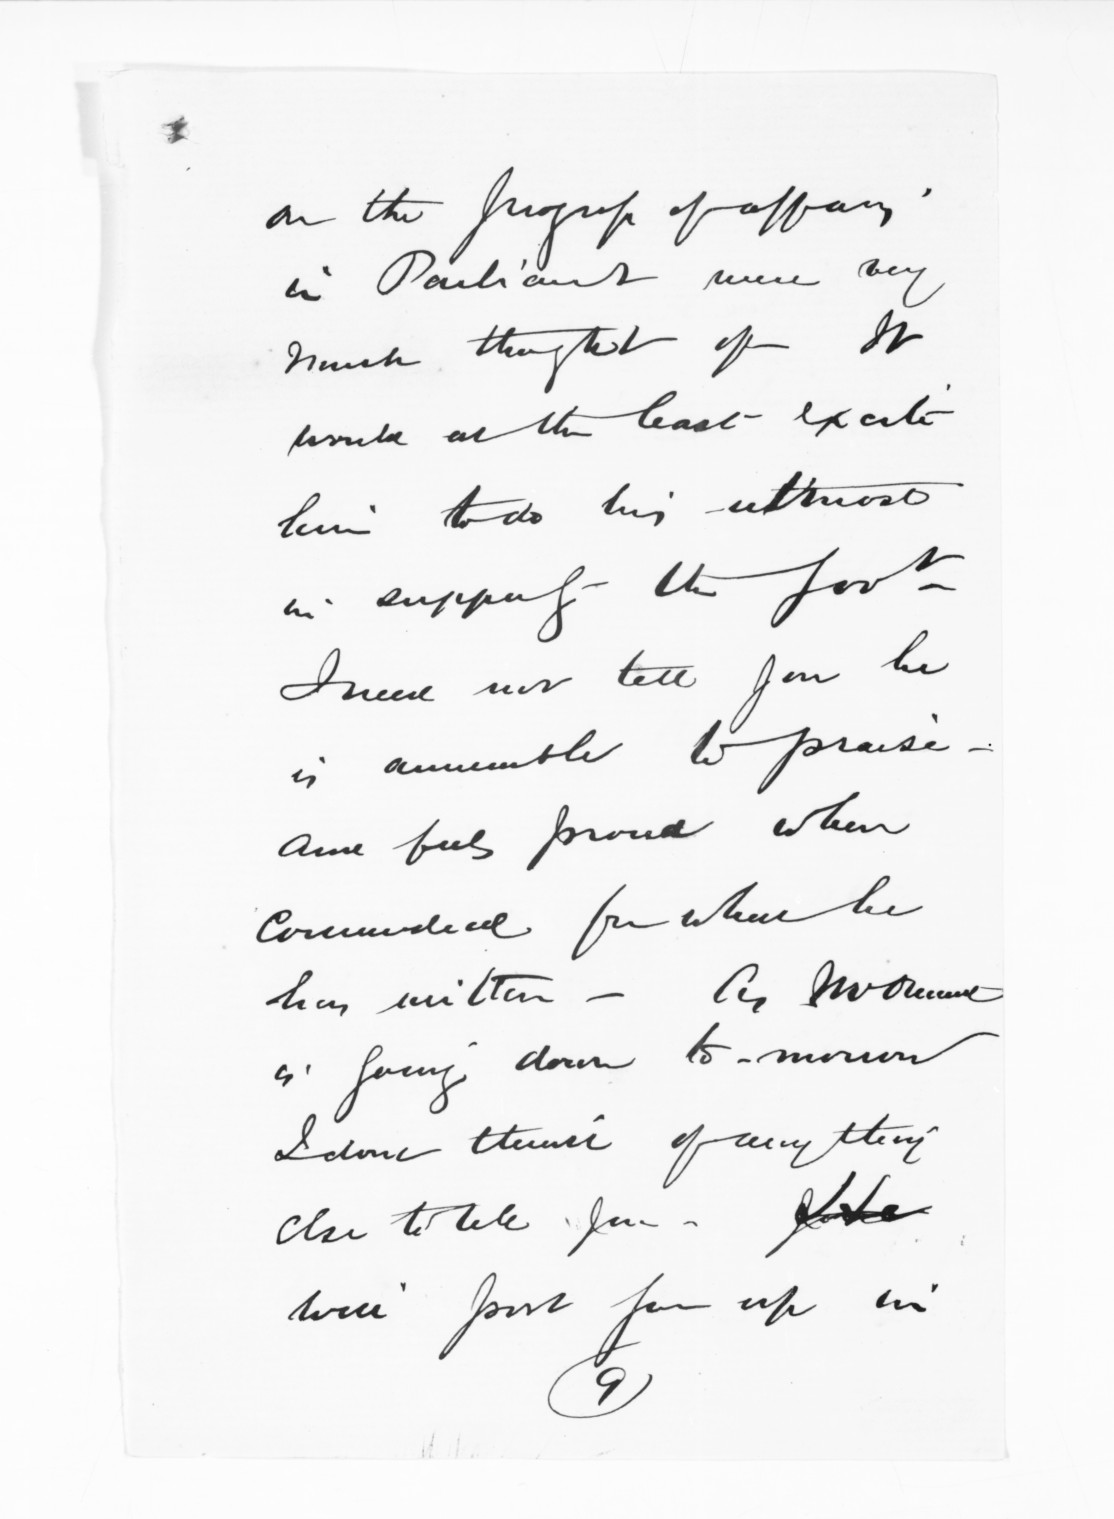 on the progress of affairs
in Parliamt were very
much thought of It
would at the least excite
him to do his utmost
in supporting the Govt
I need not tell you he
is amenable to praise -
and feels proud when
commended for what he
has written - As
is going down to-morrow
I dont think of anything
else to tell you -
will post you up in
9